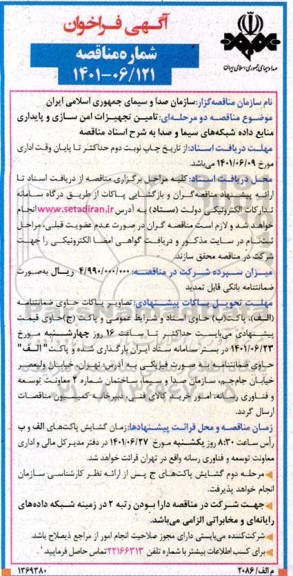 آگهی فراخوان
شماره مناقصه
۱۴۰۱-۰۶/۱۲۱
صدا و سیمای جمهوری اسلامی ایران
نام سازمان مناقصه‌گزار: سازمان صدا و سیمای جمهوری اسلامی ایران
موضوع مناقصه دو مرحله‌ای: تامین تجهیزات امن سازی و پایداری
منابع داده شبکه‌های سیما و صدا به شرح اسناد مناقصه
مهلت دریافت اسناد: از تاریخ چاپ نوبت دوم حداکثر تا پایان وقت اداری
مورخ ۱۴۰۱/۰۶/۰۹ می‌باشد.
محل دریافت اسناد: کلیه مراحل برگزاری مناقصه از دریافت اسناد تا
ارائه پیشنهاد مناقصه‌گران و بازگشایی پاکات از طریق درگاه سامانه
تدارکات الکترونیکی دولت (ستاد) به آدرس www.setadiran.ir انجام
خواهد شد و لازم است مناقصه گران در صورت عدم عضویت قبلی، مراحل
ثبت نام در سایت مذکور و دریافت گواهی امضا الکترونیکی را جهت
شرکت در مناقصه محقق سازند.
میزان سپرده شرکت در مناقصه: ۴/۹۹۰/۰۰۰/۰۰۰ ریال به‌صورت
ضمانتنامه بانکی قابل تمدید
مهلت تحویل پاکات پیشنهادی: تصاویر پاکات حاوی ضمانتنامه
(الف)، پاکت(ب) حاوی اسناد و شرایط عمومی و پاکت (ج)حاوی قیمت
پیشنهادی می‌بایست حداکثر تا ساعت ۱۶ روز چهارشنبه مورخ
۱۴۰۱/۰۶/۲۳ در بستر سامانه ستاد ایران بارگذاری شده و پاکت "الف"
حاوی ضمانتنامه به صورت فیزیکی به آدرس تهران، خیابان ولیعصر
خیابان جام‌جم، سازمان صدا و سیما، ساختمان شماره ۲ معاونت توسعه
و فناوری رسانه، امور خرید کالای فنی، دبیرخانه کمیسیون مناقصات
ارسال گردد.
زمان مناقصه و محل قرائت پیشنهادها: زمان گشایش پاکت‌های الف و ب
رأس ساعت ۸:۳۰ روز یکشنبه مورخ ۱۴۰۱/۰۶/۲۷ در دفتر مدیرکل مالی و اداری
معاونت توسعه و فناوری رسانه واقع در تهران قرائت خواهد شد.
مرحله دوم گشایش پاکت‌های ج پس از ارائه نظر کارشناسی سازمان
انجام خواهد پذیرفت.
جهت شرکت در مناقصه دارا بودن رتبه ۲ در زمینه شبکه داده‌های
رایانه‌ای و مخابراتی الزامی می‌باشد.
شرکت‌کننده می‌بایستی دارای مجوز صلاحیت انجام امور از مراجع ذیصلاح باشد.
برای کسب اطلاعات بیشتر با شماره تلفن ۲۲۱۶۶۳۱۳ تماس حاصل فرمایید.
م الف/۲۰۸۶
۱۳۶۹۳۸۰